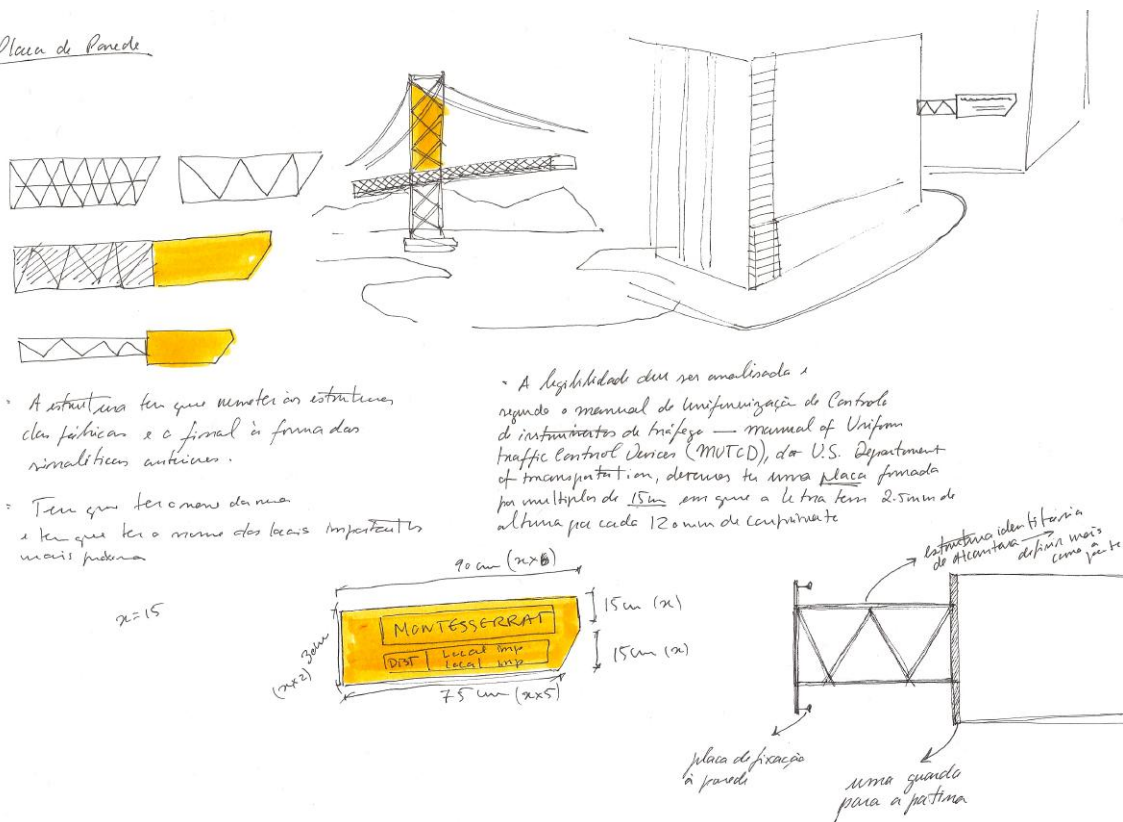 Placa de Parede
· A estrutura tem que remeter às estruturas
das fábricas e o final à forma das
sinaléticas anteriores.
· Tem que ter o nome da rua
e tem que ter o nome dos locais importantes
mais próximo
x=15
· A legibilidade deve ser analisada e
segundo o manual de Uniformização de Controlo
de instrumentos de tráfego — manual of Uniform
traffic Control Devices (MUTCD), do U.S. Department
of transportation, devemos ter uma placa formada
por multiplos de 15cm em que a letra tem 2.5mm de
altura por cada 120mm de comprimento
90 cm (x×6)
15cm (x)
15cm (x)
(x×2) 30cm
MONTESSERRAT
DIST
Local Imp
Local Imp
75 cm (x×5)
estrutura identitária
de Alcantara → definir mais
como à
placa de fixação
à parede
uma guarda
para a patina